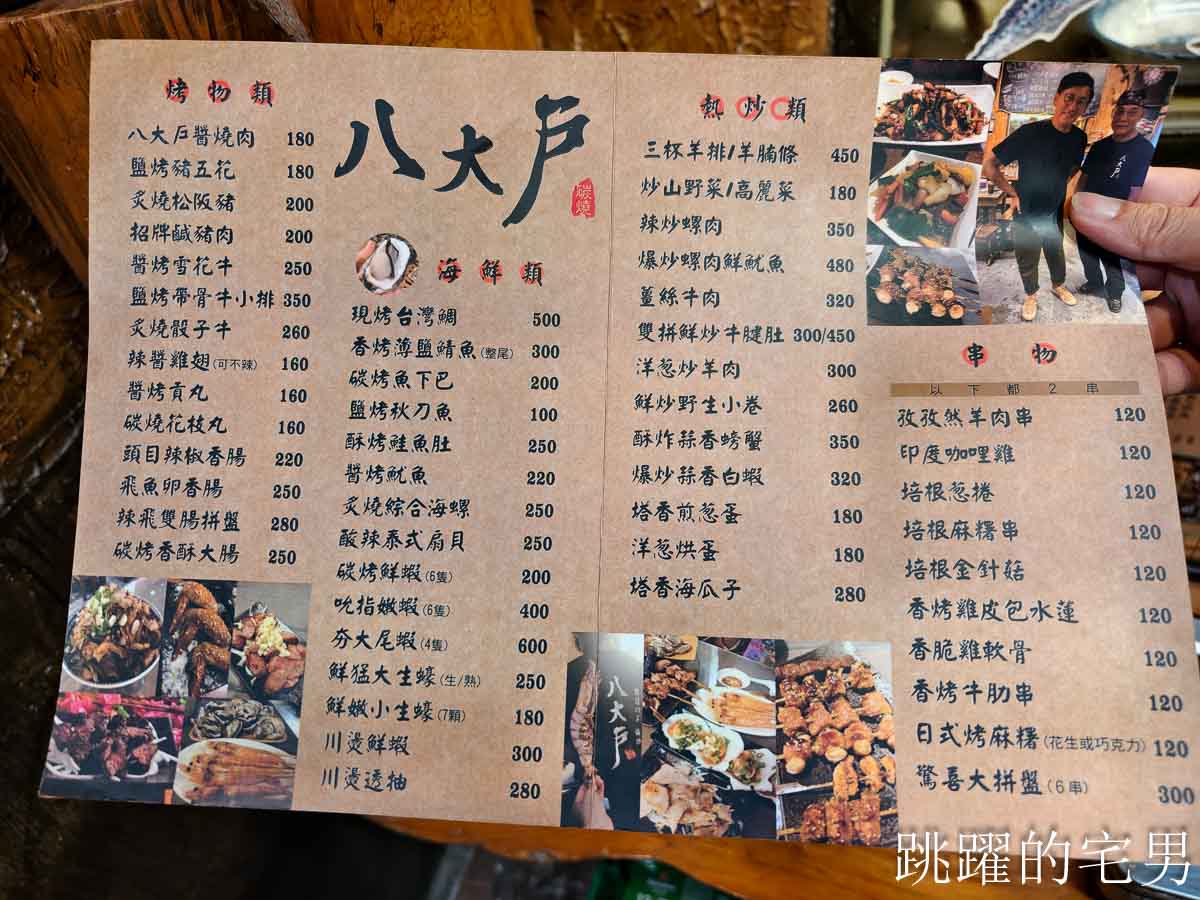 烤物類
八大戶醬燒肉 180
鹽烤豬五花 180
炙燒松阪豬 200
招牌鹹豬肉 200
醬烤雪花牛 250
鹽烤帶骨牛小排 350
炙燒骰子牛 260
辣醬雞翅(可不辣) 160
醬烤貢丸 160
碳燒花枝丸 160
頭目辣椒香腸 220
飛魚卵香腸 250
辣飛雙腸拼盤 280
碳烤香酥大腸 250
八大戶
碳燒
海鮮類
現烤台灣鯛 500
香烤薄鹽鯖魚(整尾) 300
碳烤魚下巴 200
鹽烤秋刀魚 100
酥烤鮭魚肚 250
醬烤魷魚 220
炙燒綜合海螺 250
酸辣泰式扇貝 250
碳烤鮮蝦(6隻) 200
吮指嫩蝦(6隻) 400
夯大尾蝦(4隻) 600
鮮猛大生蠔(生/熟) 250
鮮嫩小生蠔(7顆) 180
川燙鮮蝦 300
川燙透抽 280
熱炒類
三杯羊排/羊腩條 450
炒山野菜/高麗菜 180
辣炒螺肉 350
爆炒螺肉鮮魷魚 480
薑絲牛肉 320
雙拼鮮炒牛腱肚 300/450
洋蔥炒羊肉 300
鮮炒野生小卷 260
酥炸蒜香螃蟹 350
爆炒蒜香白蝦 320
塔香煎蔥蛋 180
洋蔥烘蛋 180
塔香海瓜子 280
八大戶
八大戶
串物
以下都2串
孜孜然羊肉串 120
印度咖哩雞 120
培根蔥捲 120
培根麻糬串 120
培根金針菇 120
香烤雞皮包水蓮 120
香脆雞軟骨 120
香烤牛肋串 120
日式烤麻糬(花生或巧克力) 120
驚喜大拼盤(6串) 300
跳躍的宅男